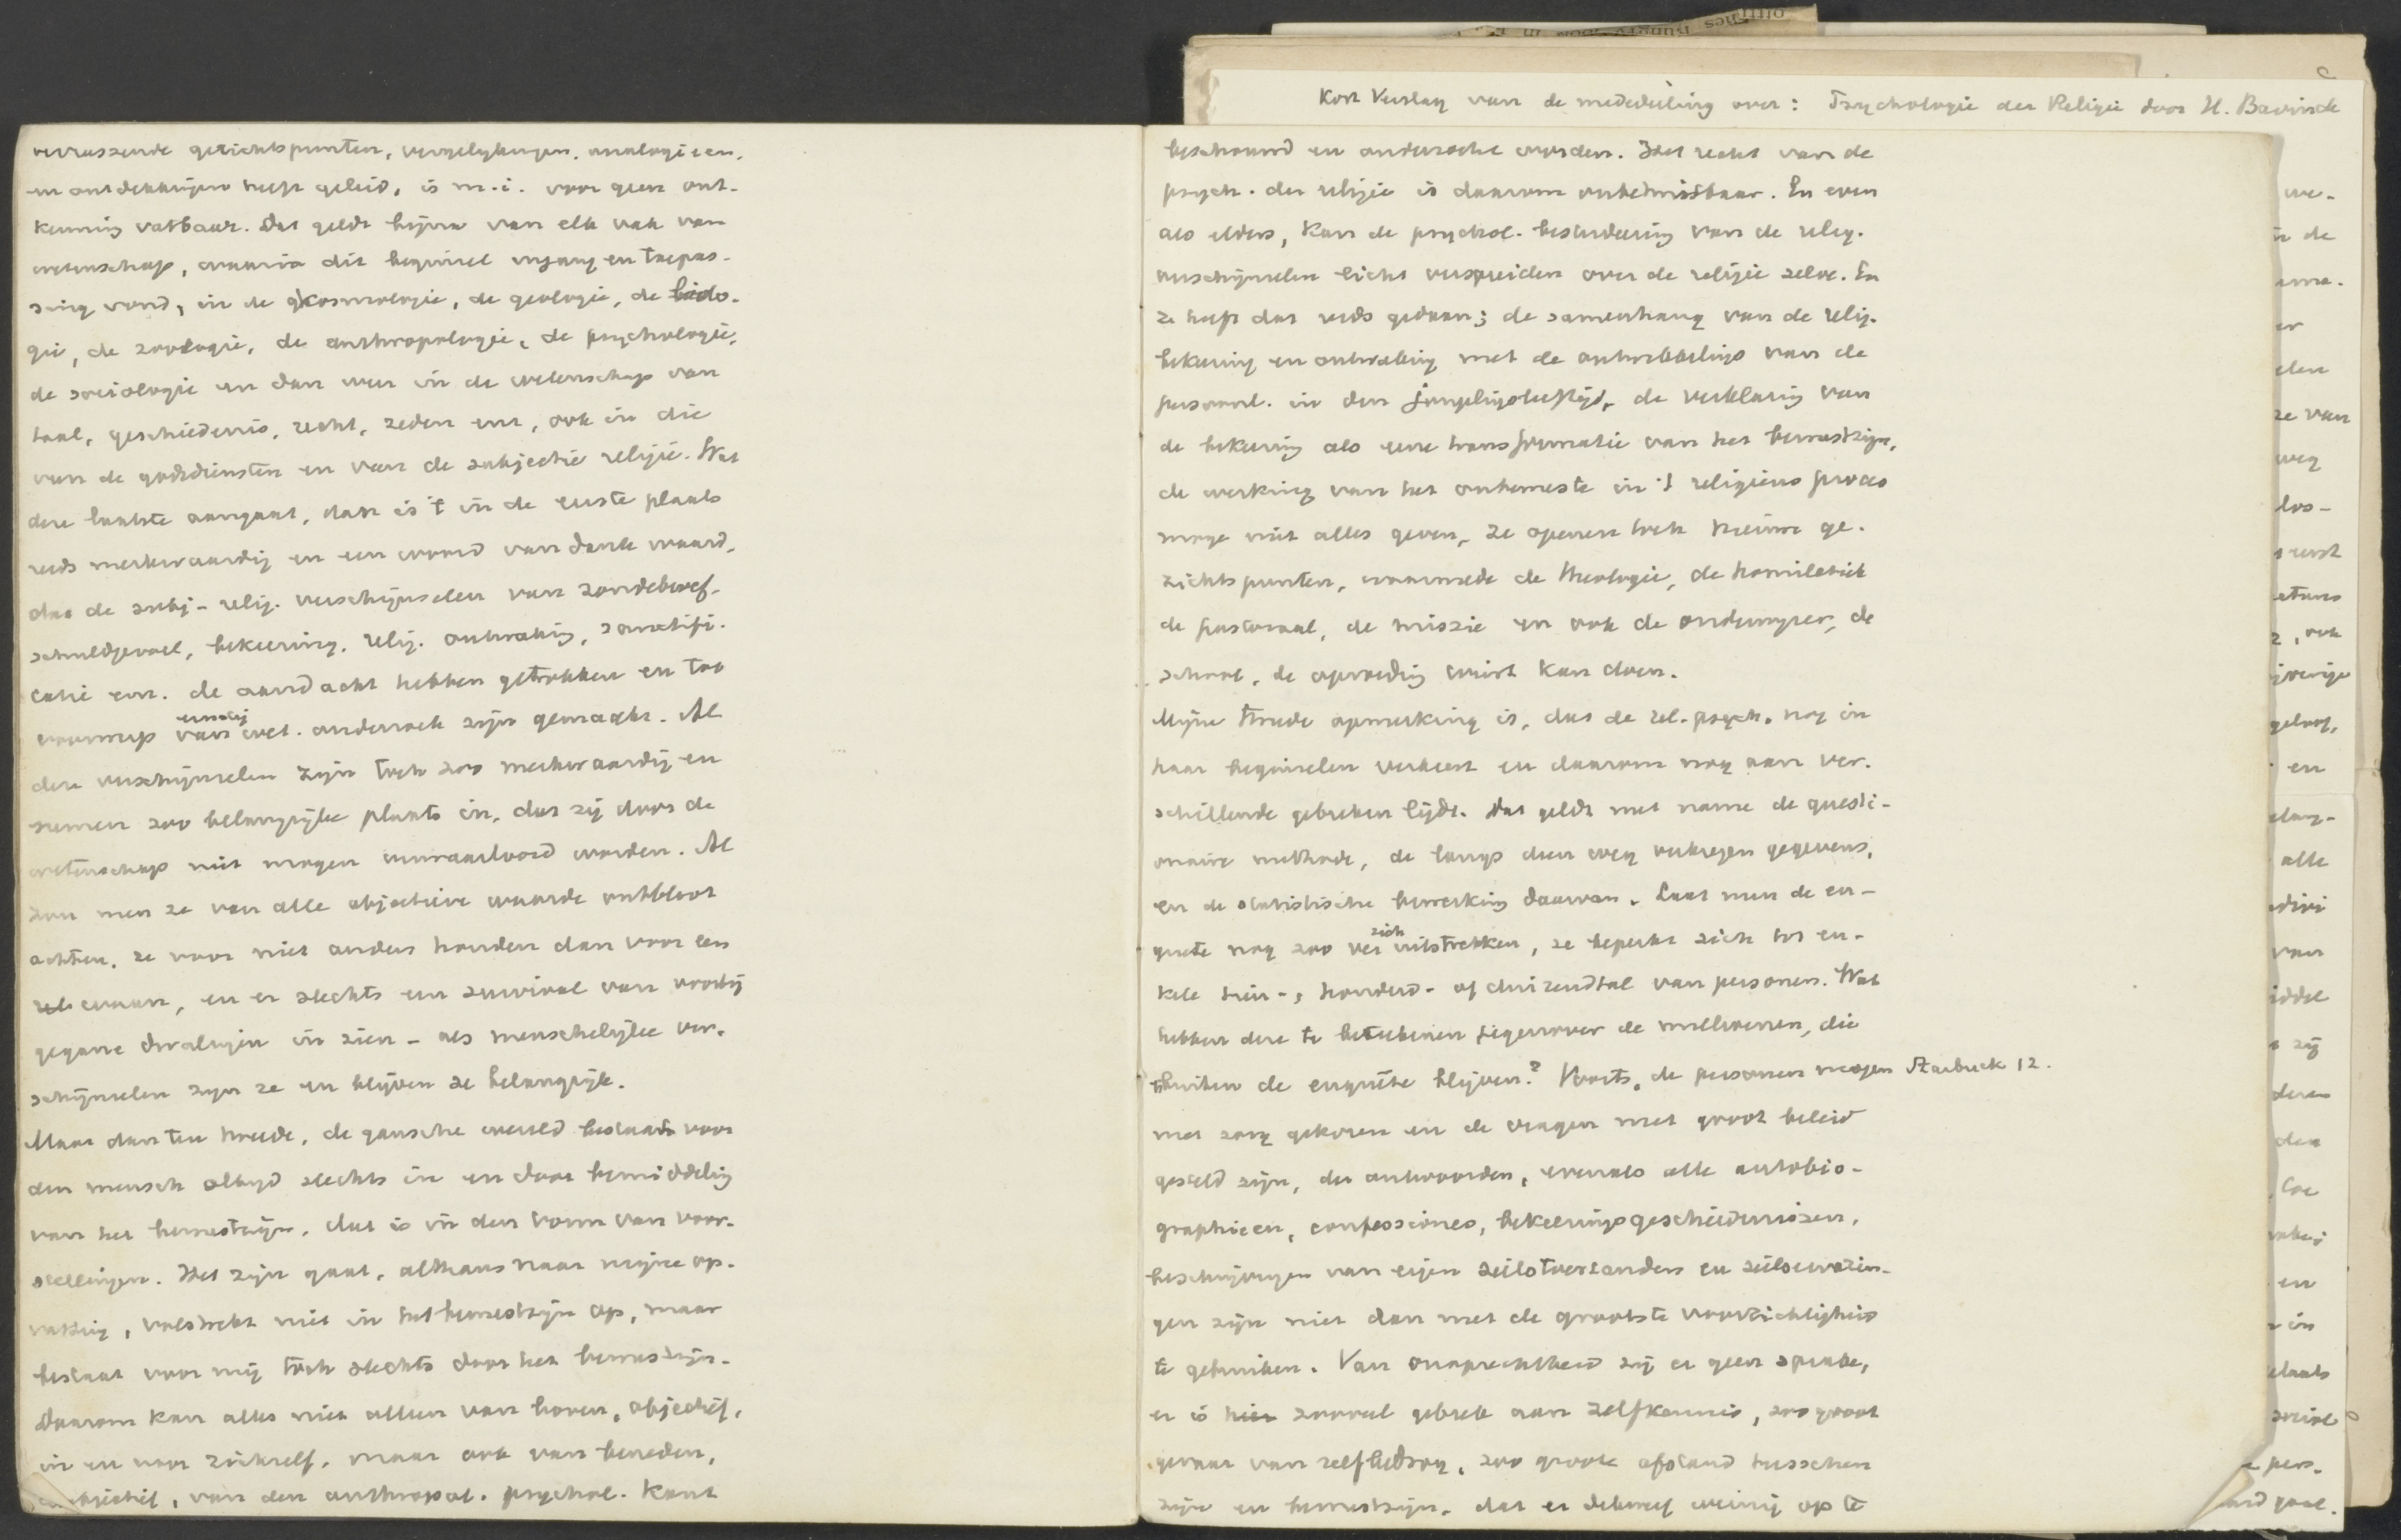 verrassende gezichtspunten, vergelykingen, analogieen,
en ontdekkingen heeft geleid, is m.i. voor geen ont-
kenning vatbaar. Dat geldt bijna van elk vak van
wetenschap, waarin dit beginsel ingang en toepas-
sing vond, in de kosmologie, de geologie, de biolo-
gie, de zoologie, de anthropologie, de psychologie,
de sociologie en dan weer in de wetenschap van
taal, geschiedenis, recht, zeden enz, ook in die
van de godsdiensten en van de subjectie religie. Wat
deze laatste aangaat, dan is 't in de eerste plaats
reeds merkwaardig en een woord van dank waard,
dat de subj- relig. verschijnselen van zondebesef-
schuldgevoel, bekeering, relig. ontwaking, sanctifi-
catie enz. de aandacht hebben getrokken en tot
voorwerp van ernstig wet. onderzoek zijn gemaakt. Al
deze verschijnselen zijn toch zoo merkwaardig en
nemen zoo belangrijke plaats in, dat zij door de
wetenschap niet mogen verwaarloosd worden. Al
zou men ze van alle objectieve waarde ontbloot
achten, ze voor niet anders houden dan voor een
waan, en er slechts een survival van voorbij
gegane dwalingen in zien - als menschelijke ver-
schijnselen zyn ze en blijven ze belangrijk.
Maar dan ten tweede, de gansche wereld bestaat voor
den mensch altyd slechts in en door bemiddeling
van het bewustzijn, dat is in den vorm van voor-
stellingen. Het zijn gaat, althans naar mijne op-
vatting, volstrekt niet in het bewustzijn op, maar
bestaat voor mij toch slechts door het bewustzijn.
Daarom kan alles niet alleen van boven, objectief,
in en voor zichzelf, maar ook van beneden,
subjectief, van den anthropol. psychol. kant
Kort Verslag van de mededeeling over: Psychologie der Religie door H. Bavinck
beschouwd en onderzocht worden. Het recht van de
psych. der religie is daarom onbetwistbaar. En even
als elders, kan de psychol. bestudeering van de relig.
verschijnselen licht verspreiden over de religie zelve. En
ze heeft dat reeds gedaan; de samenhang van de relig.
bekeering en ontwaking met de ontwikkeling van de
persoonl. in den jongelingsleeftijd, de verklaring van
de bekeering als eene transformatie van het bewustzijn,
de werking van het onbewuste in 't religieus proces
moge niet alles geven, ze openen toch nieuwe ge-
zichtspunten, waarmede de theologie, de homiletiek
de pastoraal, de missie en ook de onderwyzer, de
school, de opvoeding winst kan doen.
Mijne tweede opmerking is, dat de rel. psych. nog in
haar beginselen verkeert en daarom nog aan ver-
schillende gebreken lijdt. Dat geldt met name de questi-
onaire methode, de langs dien weg verkregen gegevens,
en de statistische bewerking daarvan. Laat men de en-
quete nog zoo ver zich uitstrekken, ze beperkt zich tot en-
kele tien-, honderd- of duizendtal van personen. Wat
hebben deze te beteekenen tegenover de millioenen, die
buiten de enquête blijven? Voorts, de personen mogen Starbuck 12.
met zorg gekozen en de vragen met groot beleid
gesteld zijn, de antwoorden, evenals alle autobio-
graphieen, confessiones, bekeeringsgeschiedenissen,
beschrijvingen van eigen zielstoestanden en zielservarin-
gen zijn niet dan met de grootste voorzichtigheid
te gebruiken. Van onoprechtheid zij er geen sprake,
er is hier zooveel gebrek aan zelfkennis, zoo groot
gevaar van zelfbedrog, zoo groote afstand tusschen
zijn en bewustzijn, dat er dikwerf weinig op te